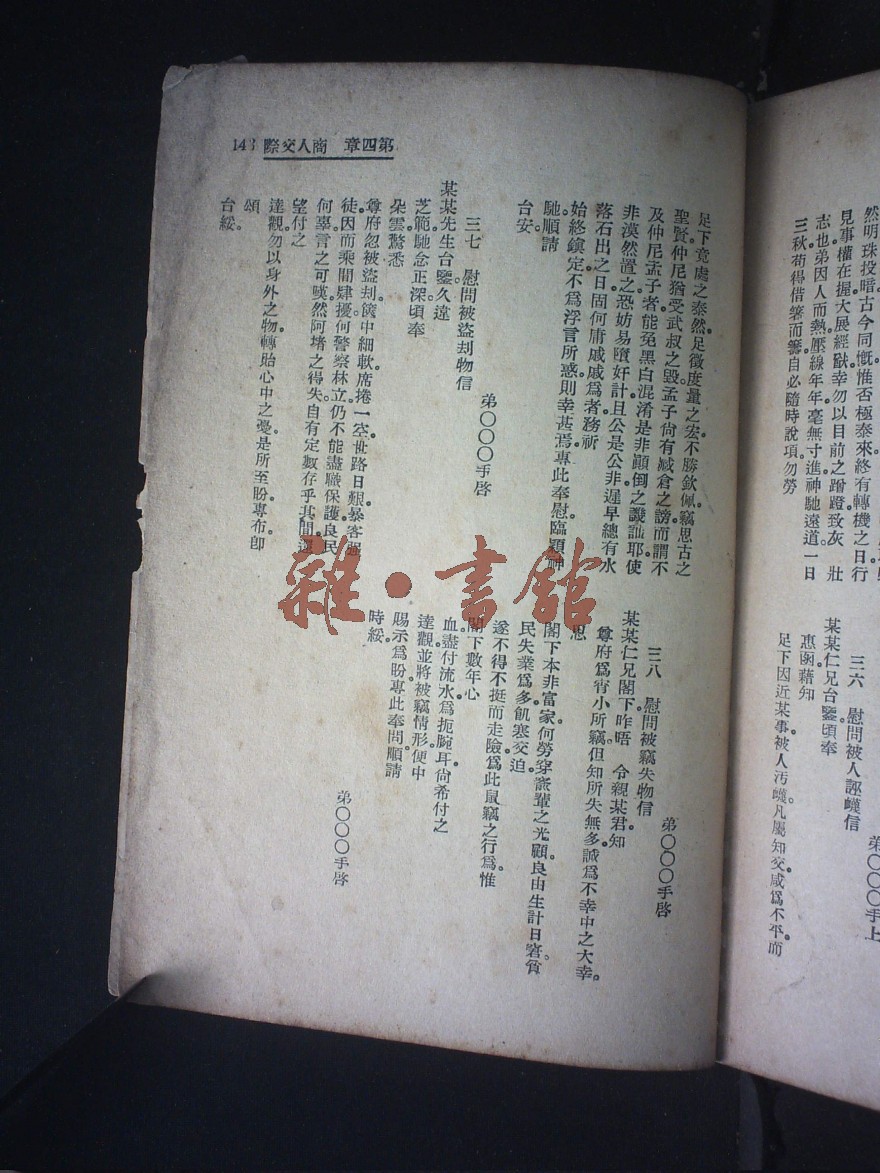 然明珠投暗古今同慨惟否極泰來終有轉機之日行
見事權在握大展經猷幸勿以目前之蹭蹬致灰 壯
志也弟因人而熱壓線年年毫無寸進神馳遠道一日
三秋苟得借箸而籌自必隨時說項勿勞
弟〇〇〇手上
三六 慰問被人誣衊信
某某仁兄台鑒頃奉
惠函藉知
足下因近某事被人汚衊凡屬知交咸爲不平而
第四章 商人交際 143
足下竟處之泰然足徵度量之宏不勝欽佩竊思古之
聖賢仲尼猶受武叔之毀孟子尙有臧倉之謗而謂不
及仲尼孟子者能免黑白混淆是非顚倒之譏訕耶使
非漠然置之恐妨易墮奸計且公是公非遲早總有水
落石出之日固何庸戚戚爲者務祈
始終鎭定不爲浮言所惑則幸甚焉專此奉慰臨穎神
馳順請
台安
弟〇〇〇手啓
三七 慰問被盜刦物信
某某先生台鑒久違
芝範馳念正深頃奉
朵雲驚悉
尊府忽被盜刦篋中細軟席捲一空世路日艱暴客
徒因而乘間肆擾何警察林立仍不能盡職保護良民
何辜言之可嘆然阿堵之得失自有定數存乎其間
望付之
達觀勿以身外之物轉貽心中之憂是所至盼專布卽
頌
台綏
弟〇〇〇手啓
三八 慰問被竊失物信
某某仁兄閣下昨晤 令親某君知
尊府爲宵小所竊但知所失無多誠爲不幸中之大幸
思
閣下本非富家何勞穿窬輩之光顧良由生計日窘貧
民失業爲多飢寒交迫
遂不得不挺而走險爲此鼠竊之行爲惟
閣下數年心
血盡付流水爲扼腕耳尙希付之
達觀並將被竊情形便中
賜示爲盼專此奉問順請
時綏
弟〇〇〇手啓
雜·書館